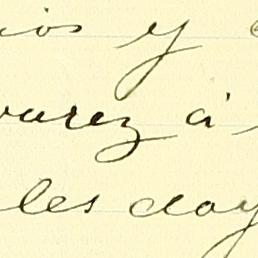 ios y
varez á
les doy